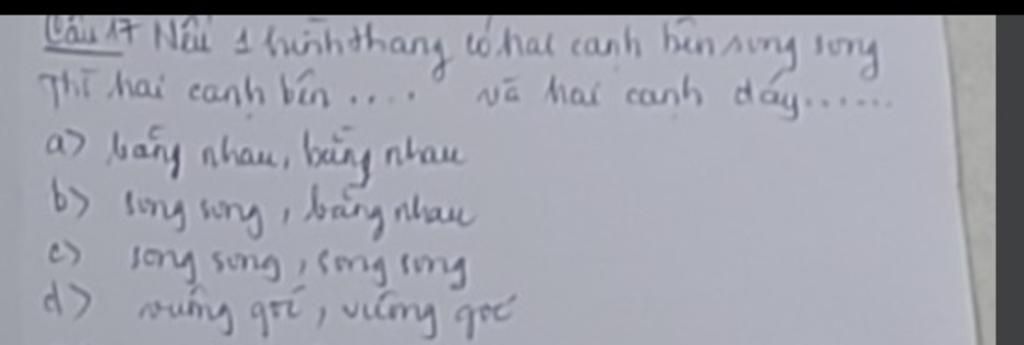 Câu 17 Nếu 1 hình thang có hai cạnh bên song song
Thì hai cạnh bên .... và hai cạnh đáy......
a) bằng nhau, bằng nhau
b) song song, bằng nhau
c) song song, song song
d) vuông góc, vuông góc